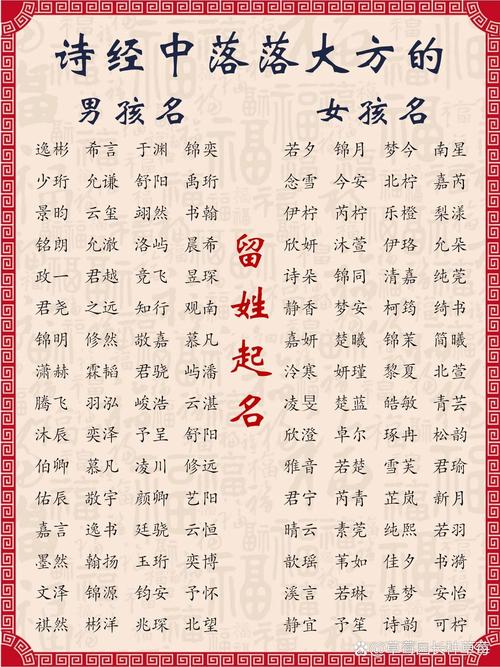 诗经中落落大方的
男孩名 女孩名
逸彬 希言 于渊 锦奕 若夕 锦月 梦今 南星
少珩 允谦 舒阳 禹珩 念雪 今安 北柠 嘉芮
景昀 云玺 翊然 书翰 伊柠 芮柠 乐橙 梨漾
铭朗 允澈 洛屿 晨希 欣妍 沐萱 伊珞 允朵
政一 君越 竞飞 昱琛 诗朵 锦同 清嘉 纯莞
君尧 之远 知行 观南 静香 梦安 柯筠 绮书
锦明 修然 敬嘉 慕凡 嘉妍 楚曦 锦茉 简曦
潇赫 霖韬 君骁 屿潘 泠寒 妍瑾 黎夏 北萱
腾飞 羽泓 峻浩 云湛 凌旻 楚蓝 皓敏 青芸
沐辰 奕泽 予呈 舒阳 欣澄 卓尔 琢冉 松韵
伯卿 慕凡 凌川 修远 雅音 若楚 雪芙 君瑜
佑辰 敬宇 颜卿 艺阳 君宁 芮青 芷岚 新月
嘉言 逸书 廷骁 云恒 晴云 素莞 纯熙 若羽
墨然 翰扬 玉珩 奕博 歆瑶 苇如 佳夕 书漪
文泽 锦源 钧安 予怀 溪言 若琳 嘉梦 安怡
祺然 彬洋 兆琛 北望 静宜 予笙 诗韵 可柠
留姓起名